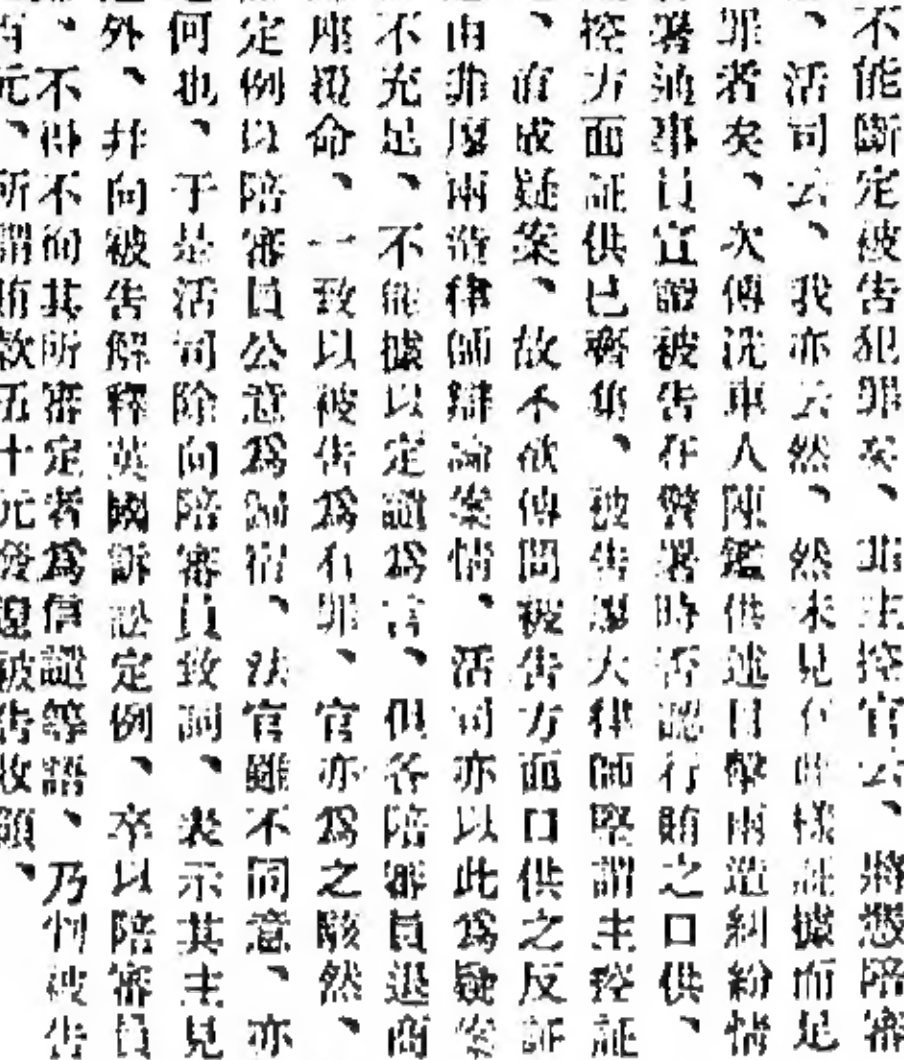 不能斷定被告犯罪矣、非主控官云、將憑陪審
、活司云、我亦云然、然未見有此樣証據而足
罪者矣、次傳洗車人陳鑑供述目擊兩造糾紛情
署滴事員宣誓被告在警署時否認行賄之口供、
控方面証供已齊集、被告廖大律師堅謂主控証
、直成疑案、故不欲傳問被告方面口供之反証
由非廖兩造律師辯論案情、活司亦以此為疑案
不充足、不能據以定讞為言、但各陪審員退商
座覆命、一致以被告為有罪、官亦為之駭然、
定例以陪審員公意為歸宿、法官雖不同意、亦
何也、于是活司除向陪審員致詞、表示其主見
外、并向被告解釋英國訴訟定例、卒以陪審員
、不得不向其所審定者為信讞等語、乃判被告
百元、所謂賄欵五十元發還被告收領、